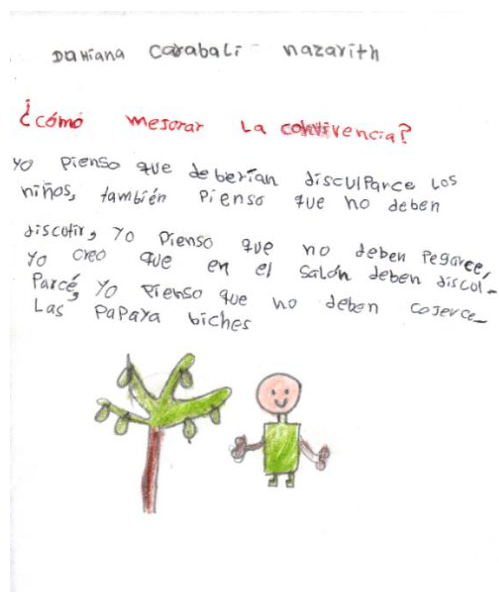 Damiana Carabali nazarith
¿cómo mesorar La convivencia?
Yo Pienso que deberían disculParce Los
niños, también Pienso que no deben
discotir, Yo Pienso que no deben Pegarce,
Yo creo que en el salón deben discol-
Parcé, Yo Pienso que no deben cojerce
Las PaPaya biches